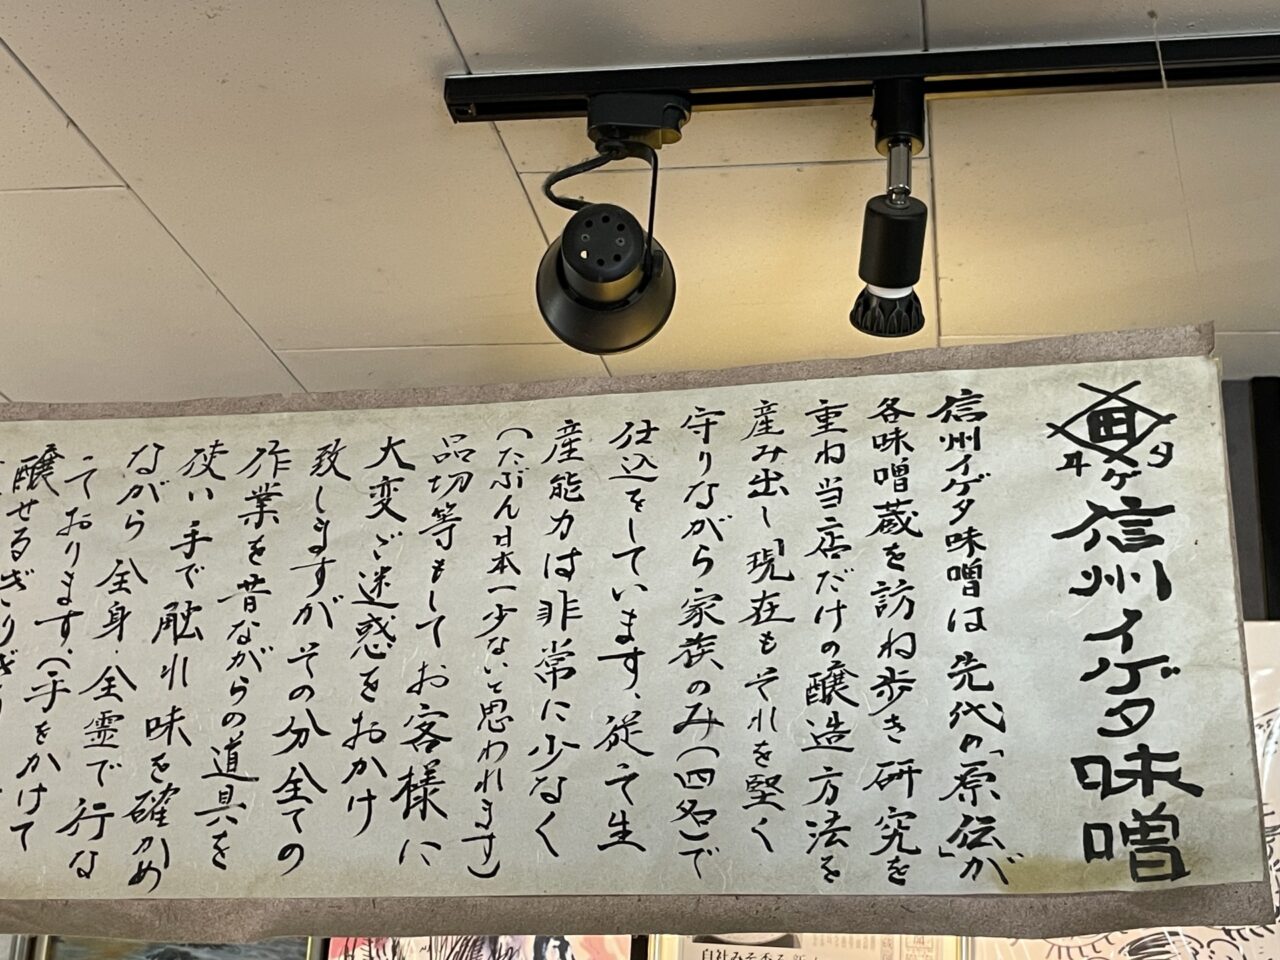 田
ヰゲタ
信州イゲタ味噌
信州イゲタ味噌は先代の「原伝」が
各味噌蔵を訪ね歩き研究を
重ね当店だけの醸造方法を
産み出し「現在もそれを堅く
守りながら家族のみ(四名)で
仕込をしています、従って生
産能力は非常に少なく
(たぶん日本一少ないと思われます)
品切等もしてお客様に
大変ご迷惑をおかけ
致しますがその分全ての
作業を昔ながらの道具を
使い手で触れ味を確かめ
ながら全身・全霊で行な
っております。(手をかけて
醸せるぎりぎり